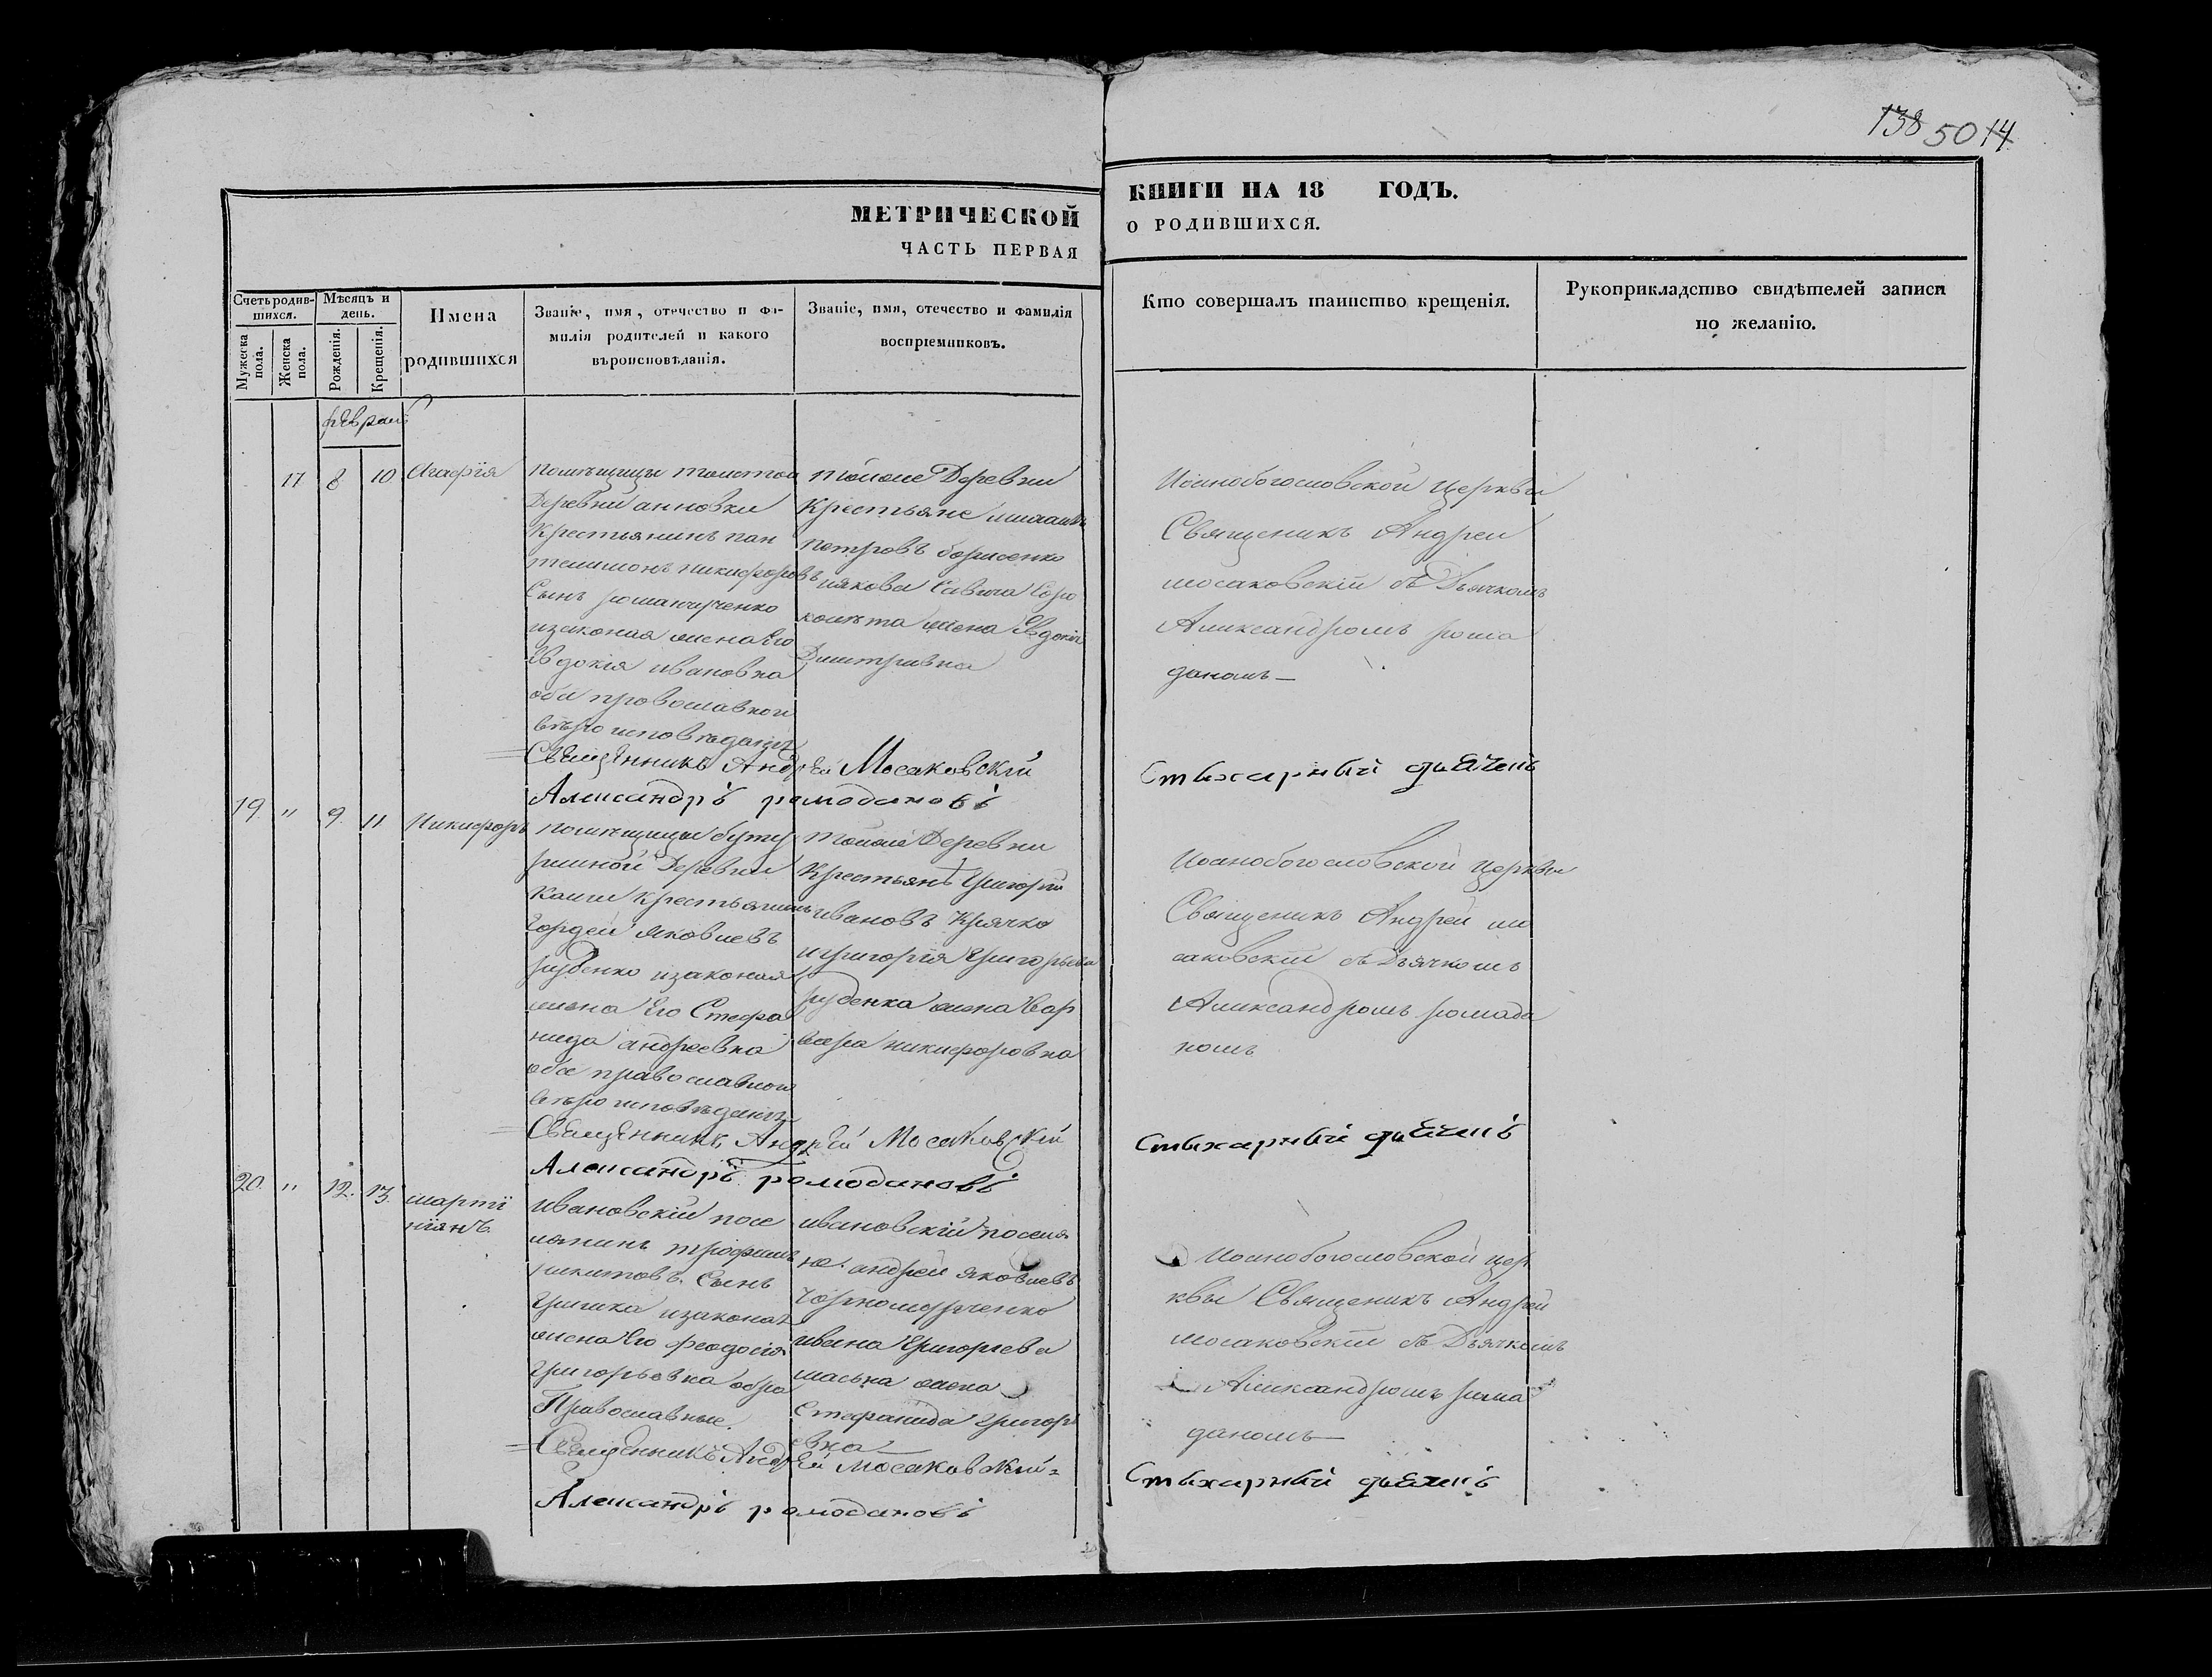 138 50 14
МЕТРИЧЕСКОЙ
ЧАСТЬ ПЕРВАЯ
КНИГИ НА 18 ГОДЪ.
О РОДИВШИХСЯ.
Счетъ родив-
шихся.
Мужеска
пола.
Женска
пола.
Мѣсяцъ и
день.
Рожденія.
Крещенія.
Имена
родившихся
Званіе, имя, отечество и фа-
милія родителей и какого
вѣроисповѣданія.
Званіе, имя, отечество и фамилія
воспріемниковъ.
Кто совершалъ таинство крещенія.
Рукоприкладство свидѣтелей записи
по желанію.
17 8 10 Агафія
помѣщицы толстои
Деревни анновки
Крестьянинъ пан
телимонъ никифоровъ
Сынъ
изаконая жена Его
Евдокія ивановна
оба провославнои
вѣро исповѣдани
тойже Деревни
Крестьяне
петровъ борисенко
иякова Савича
жена Евдокія
Дмитривна
Иоанобогословской Церквы
Священикъ Андреи
мосаковскій съ Дьячкомъ
Александромъ рома
даномъ
Священникъ Андрей Мосаковскій
Александръ ромодановъ
Стихарный дьячекъ
19. " 9. 11 Никифоръ
помѣщицы буту
рлиной Деревни
Крестьянинъ
Гордей яковлевъ
рубенко изаконая
жена Его Стефа
нида андреевна
оба православного
вѣро исповѣдани
тойже Деревни
Крестьянъ Григорій
ивановъ Крячко
и григорія Григорьева
рубенка жена Вар
вара никифоровна
Иоанобогословской Церквы
Священикъ Андрей мо
саковскій съ Дьячкомъ
Александромъ ромада
номъ
Священникъ Андрей Мосаковскій
Александръ ромодановъ
Стихарный дьячекъ
20. " 12. 13. марти
ніянъ
Ивановскій посе
лянинъ трофимъ
никитовъ Сынъ
изаконая
жена Его феодосія
Григорьевна обоя
Православные.
ивановскій поселя
не андрей яковлевъ
ивана Григорьева
жена
Стефанида Григорь
евна
Иоанобогословской цер
квы Священикъ Андрей
мосаковскій съ Дьячкомъ
Александромъ рома
даномъ
Священникъ Андрей Мосаковскій
Александръ ромодановъ
Стихарный дьячекъ